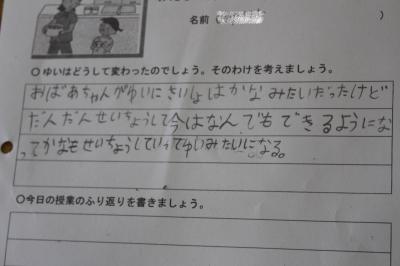 名前( )
○ゆいはどうして変わったのでしょう。そのわけを考えましょう。
おばあちゃんがゆいにさいしょはかなみたいだったけど
だんだんせいちょうして今はなんでもできるようにな
ってかなもせいちょうしていってゆいみたいになる。
○今日の授業のふり返りを書きましょう。